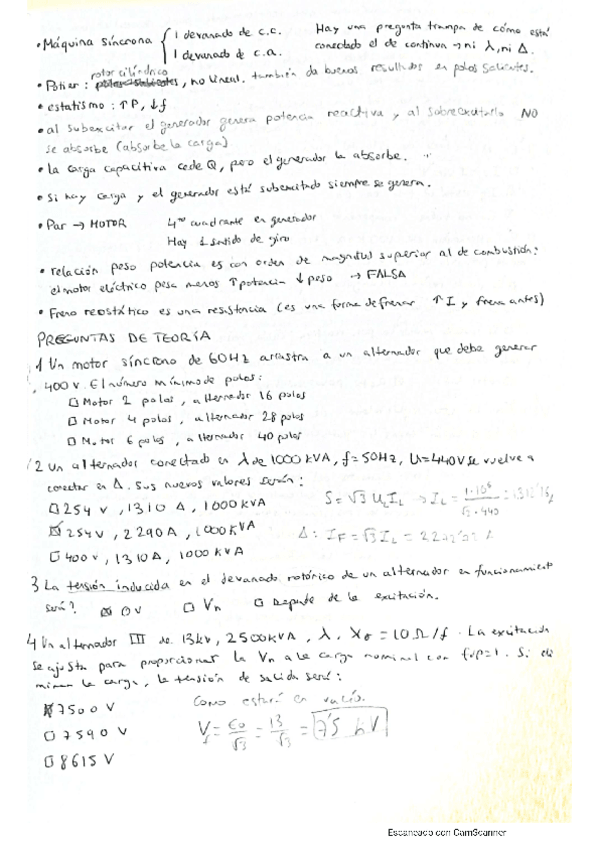 • Máquina síncrona { 1 devanado de c.c. Hay una pregunta trampa de cómo está
1 devanado de c.a. conectado el de continua → ni λ, ni Δ.
rotor cilíndrico
• Potier: polos salientes, no lineal. también da buenos resultados en polos salientes.
• estatismo: ↑P, ↓f
• al subexcitar el generador genera potencia reactiva y al sobreexcitarlo NO
se absorbe (absorbe la carga)
• la carga capacitiva cede Q, pero el generador la absorbe.
• Si hay carga y el generador está subexcitado siempre se genera.
• Par → MOTOR 4º cuadrante en generador
Hay 1 sentido de giro
• relación peso potencia es con orden de magnitud superior al de combustión:
el motor eléctrico pesa menos ↑potencia ↓peso → FALSA
• Freno reostático es una resistencia (es una forma de frenar ↑I y frena antes)
PREGUNTAS DE TEORÍA
1 Un motor síncrono de 60Hz arrastra a un alternador que debe generar
400 v. El número mínimo de polos:
□ Motor 2 polos, alternador 16 polos
□ Motor 4 polos, alternador 28 polos
□ Motor 6 polos, alternador 40 polos
2 Un alternador conectado en λ de 1000 KVA, f=50Hz, U=440V se vuelve a
conectar en Δ. Sus nuevos valores serán:
□ 254 v, 1310 A, 1000 KVA S = √3 U_L I_L → I_L = 1·10⁶ / √3·440 =
☒ 254v, 2290A, 1000KVA Δ: I_F = √3 I_L =
□ 400 v, 1310A, 1000 KVA
3 La tensión inducida en el devanado rotórico de un alternador en funcionamiento
será? ☒ 0V □ Vn □ Depende de la excitación.
4 Un alternador III de 13kv, 2500KVA, λ, = 10Ω/f. La excitación
se ajusta para proporcionar la Vn a la carga nominal con fdp=1. Si
la carga, la tensión de salida será:
☒ 7500 V Como estará en vacío.
□ 7590 V V_f = E0/√3 = 13/√3 = 7'5 kV
□ 8615 V
Escaneado con CamScanner